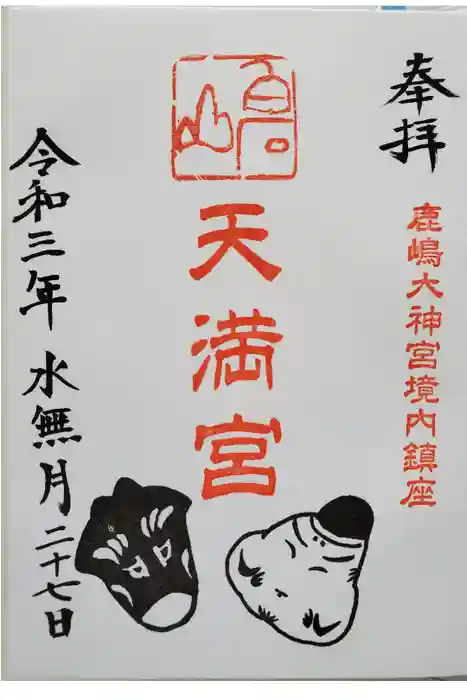 奉拝
鹿嶋大神宮境内鎮座
高山
天満宮
令和三年 水無月二十七日